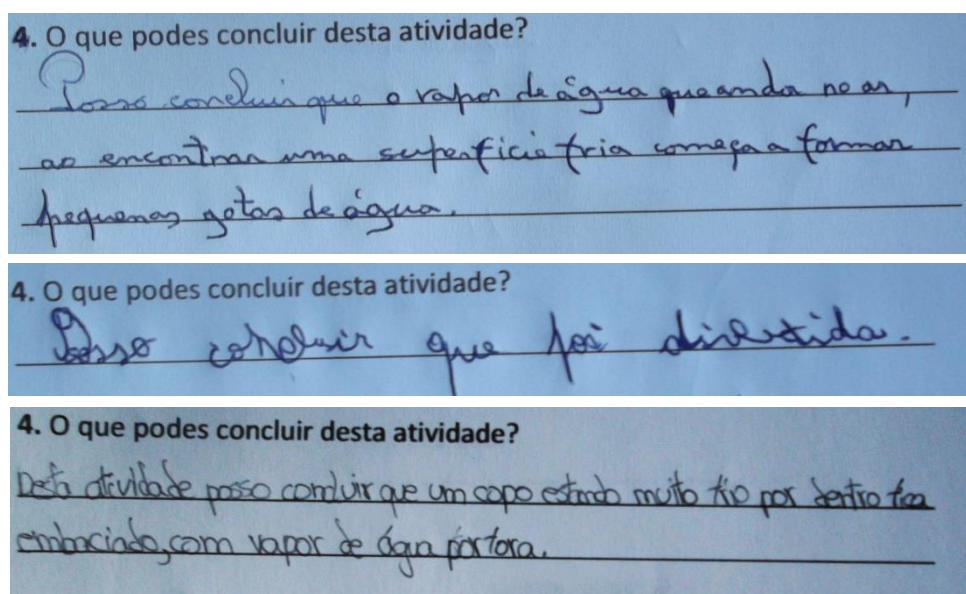 4. O que podes concluir desta atividade?
Posso concluir que o vapor de água que anda no ar,
ao encontrar uma superfície fria começa a formar
pequenas gotas de água.
4. O que podes concluir desta atividade?
Posso concluir que foi divertida.
4. O que podes concluir desta atividade?
Desta atividade posso concluir que um copo estando muito frio por dentro fica
embaciado, com vapor de água por fora.